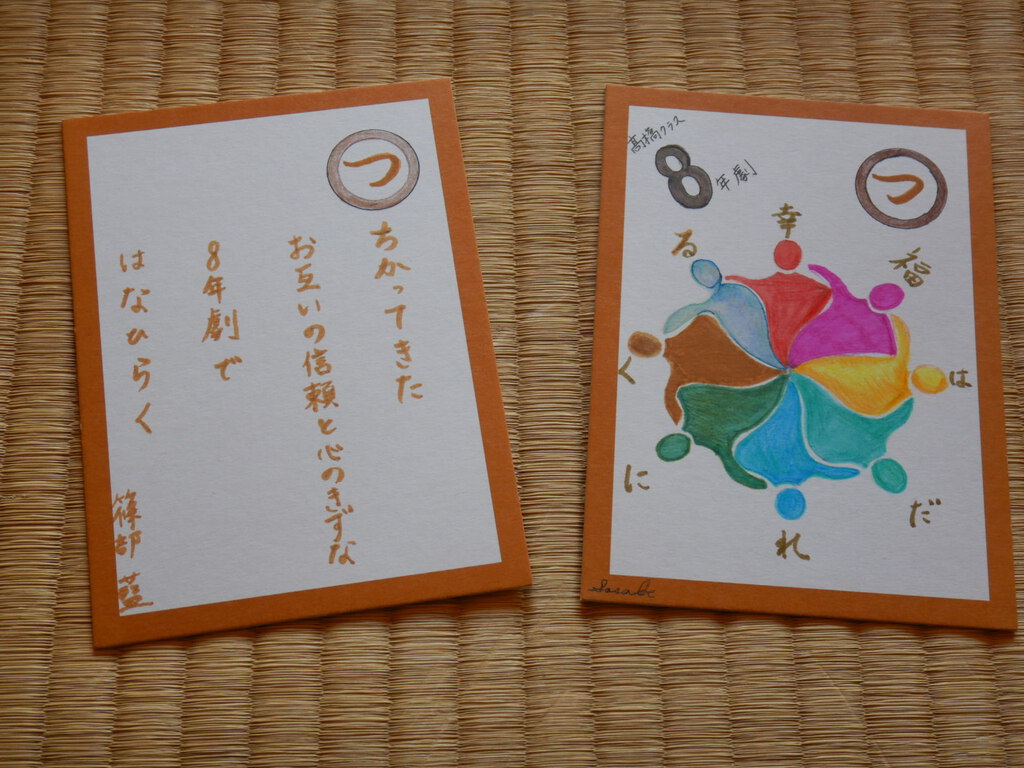 つ
ちかってきた
お互いの信頼と心のきずな
8年劇で
はなひらく
篠部 藍
高橋クラス
8年劇
つ
幸福はだれにくる
Sasabe